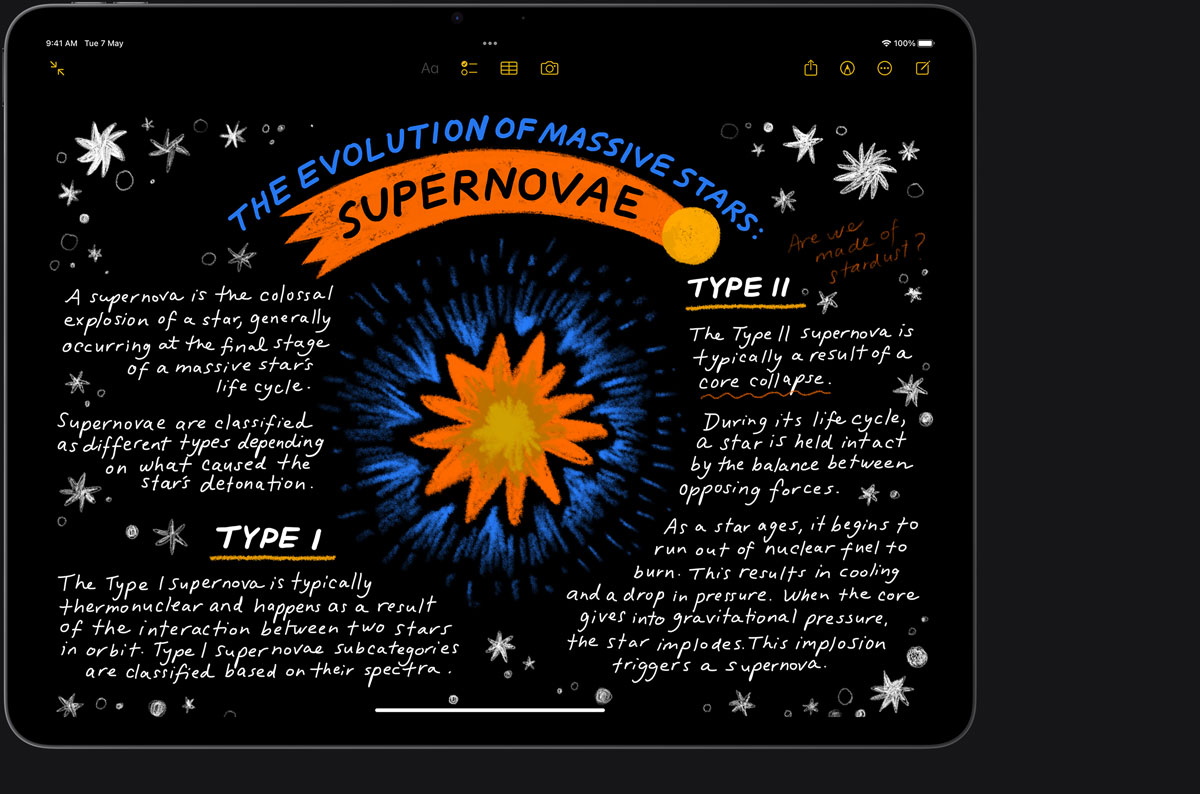 9:41 AM Tue 7 May
100%
Aa
THE EVOLUTION OF MASSIVE STARS:
SUPERNOVAE
Are we
made of
stardust?
A supernova is the colossal
explosion of a star, generally
occurring at the final stage
of a massive star's
life cycle.
Supernovae are classified
as different types depending
on what caused the
star's detonation.
TYPE I
The Type I supernova is typically
thermonuclear and happens as a result
of the interaction between two stars
in orbit. Type I supernovae subcategories
are classified based on their spectra.
TYPE II
The Type II supernova is
typically a result of a
core collapse.
During its life cycle,
a star is held intact
by the balance between
opposing forces.
As a star ages, it begins to
run out of nuclear fuel to
burn. This results in cooling
and a drop in pressure. When the core
gives into gravitational pressure,
the star implodes. This implosion
triggers a supernova.